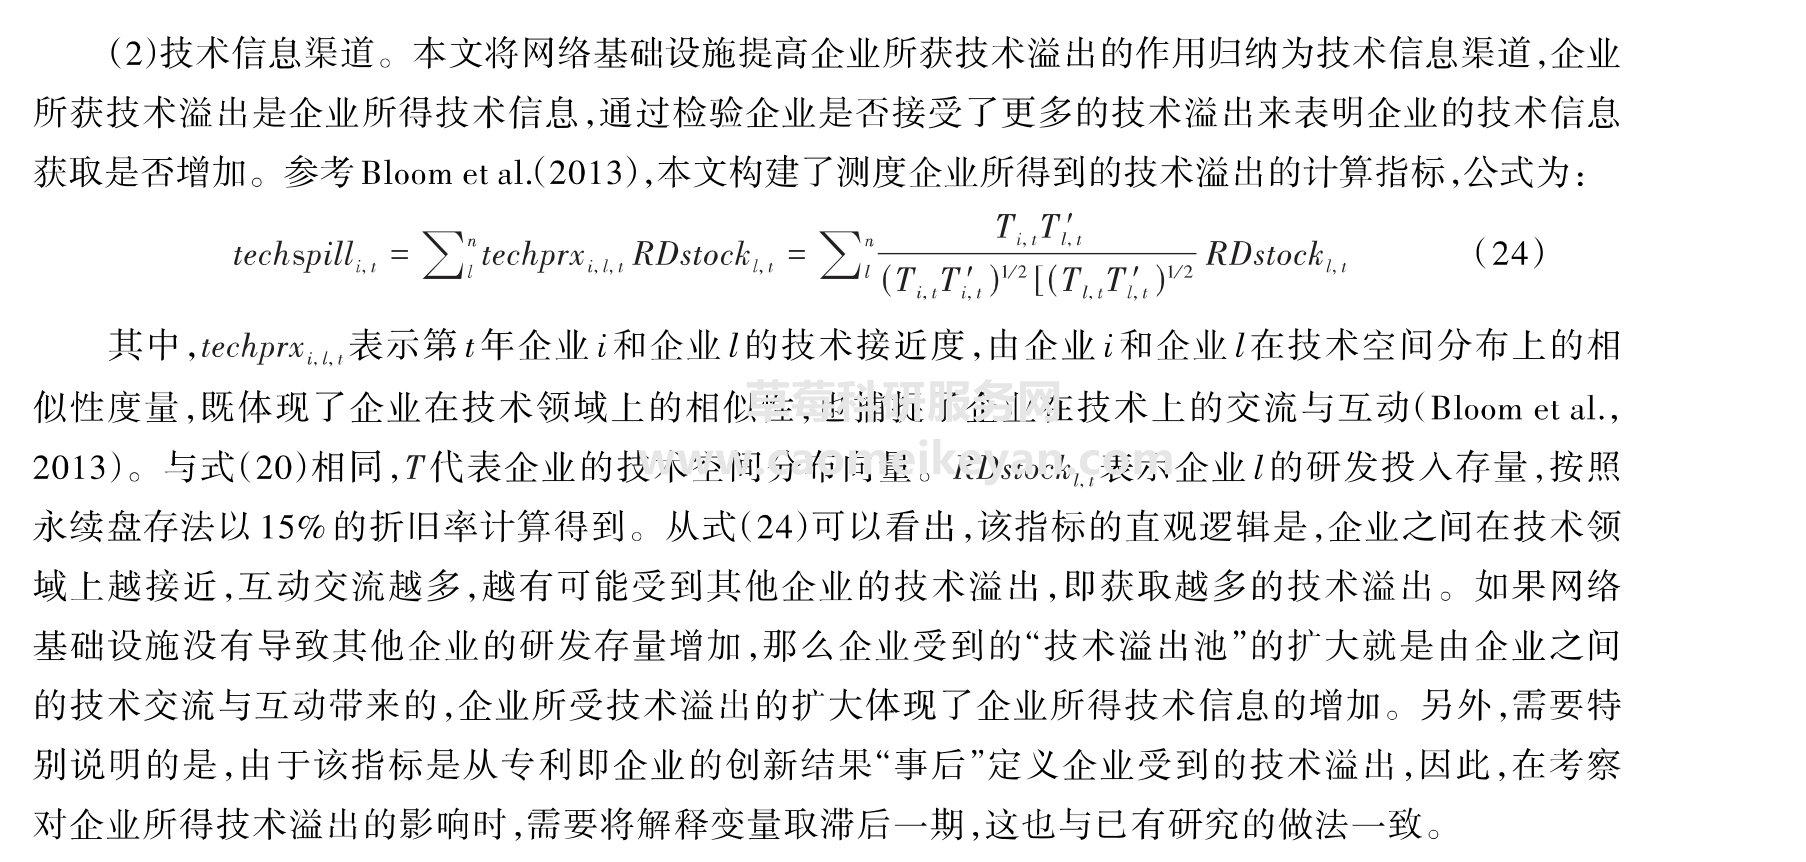 (2)技术信息渠道。本文将网络基础设施提高企业所获技术溢出的作用归纳为技术信息渠道,企业
所获技术溢出是企业所得技术信息,通过检验企业是否接受了更多的技术溢出来表明企业的技术信息
获取是否增加。参考Bloom et al.(2013),本文构建了测度企业所得到的技术溢出的计算指标,公式为:
techspill_{i,t} = ∑_l^n techprx_{i,l,t} RDstock_{l,t} = ∑_l^n \frac{T_{i,t}T'_{l,t}}{(T_{i,t}T'_{i,t})^{1/2}[(T_{l,t}T'_{l,t})^{1/2}} RDstock_{l,t} (24)
其中,techprx_{i,l,t}表示第t年企业i和企业l的技术接近度,由企业i和企业l在技术空间分布上的相
似性度量,既体现了企业在技术领域上的相似性,也捕捉了企业在技术上的交流与互动(Bloom et al.,
2013)。与式(20)相同,T代表企业的技术空间分布向量。RDstock_{l,t}表示企业l的研发投入存量,按照
永续盘存法以15%的折旧率计算得到。从式(24)可以看出,该指标的直观逻辑是,企业之间在技术领
域上越接近,互动交流越多,越有可能受到其他企业的技术溢出,即获取越多的技术溢出。如果网络
基础设施没有导致其他企业的研发存量增加,那么企业受到的“技术溢出池”的扩大就是由企业之间
的技术交流与互动带来的,企业所受技术溢出的扩大体现了企业所得技术信息的增加。另外,需要特
别说明的是,由于该指标是从专利即企业的创新结果“事后”定义企业受到的技术溢出,因此,在考察
对企业所得技术溢出的影响时,需要将解释变量取滞后一期,这也与已有研究的做法一致。
草莓科研服务网
www.caomeikeyan.com